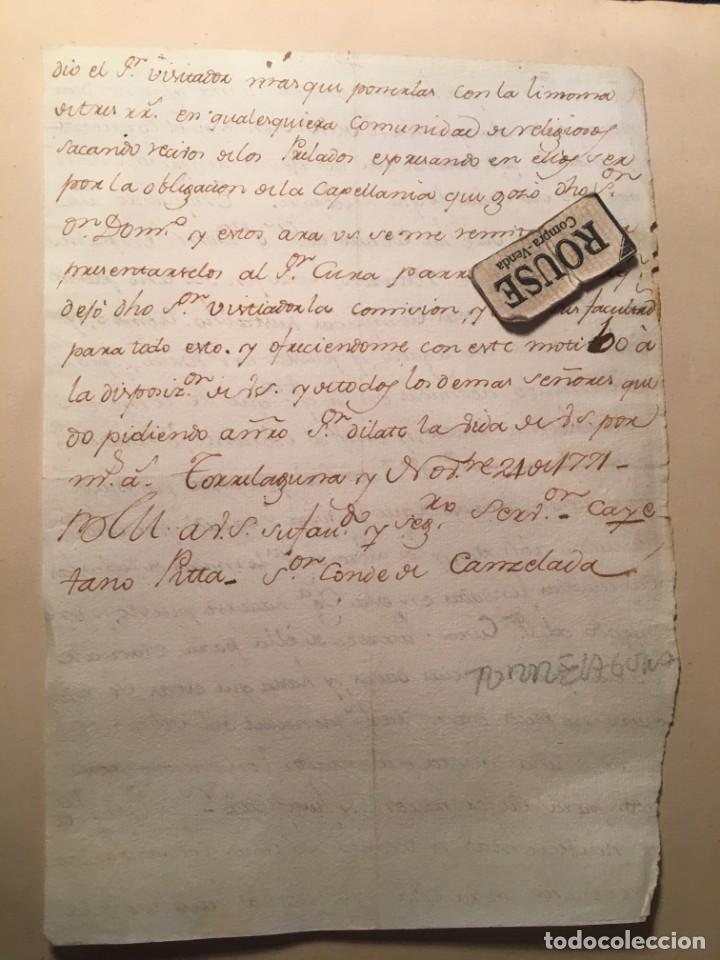 dio el S.r Visitador mas que ponerlas con la limosna
de tres rr.s en qualesquiera Comunidad de religiosos
sacando recivos de los Prelados expresando en ellos ser
por la obligacion de la Capellania que gozó dho S.or
D.n Dom.o y estos a ra vs. se me
presentarselos al S.r Cura
dejó dho S.or Visitador la comision, y facultad
para todo esto. y ofreciendome con este motibo à
la disposiz.on de vs. y de todos los demas señores que
do pidiendo a nro S.r dilate la vida de V.S. por
m.s a.s Torrelaguna y Nov.re 21 de 1771-
BLM. a V.S. su y seg.ro Serv.or Caye
tano Pitta- S.or Conde de Canzelada
TORRELAGUNA
ROUSE
Compra-Venda
todocoleccion
todocoleccion.net